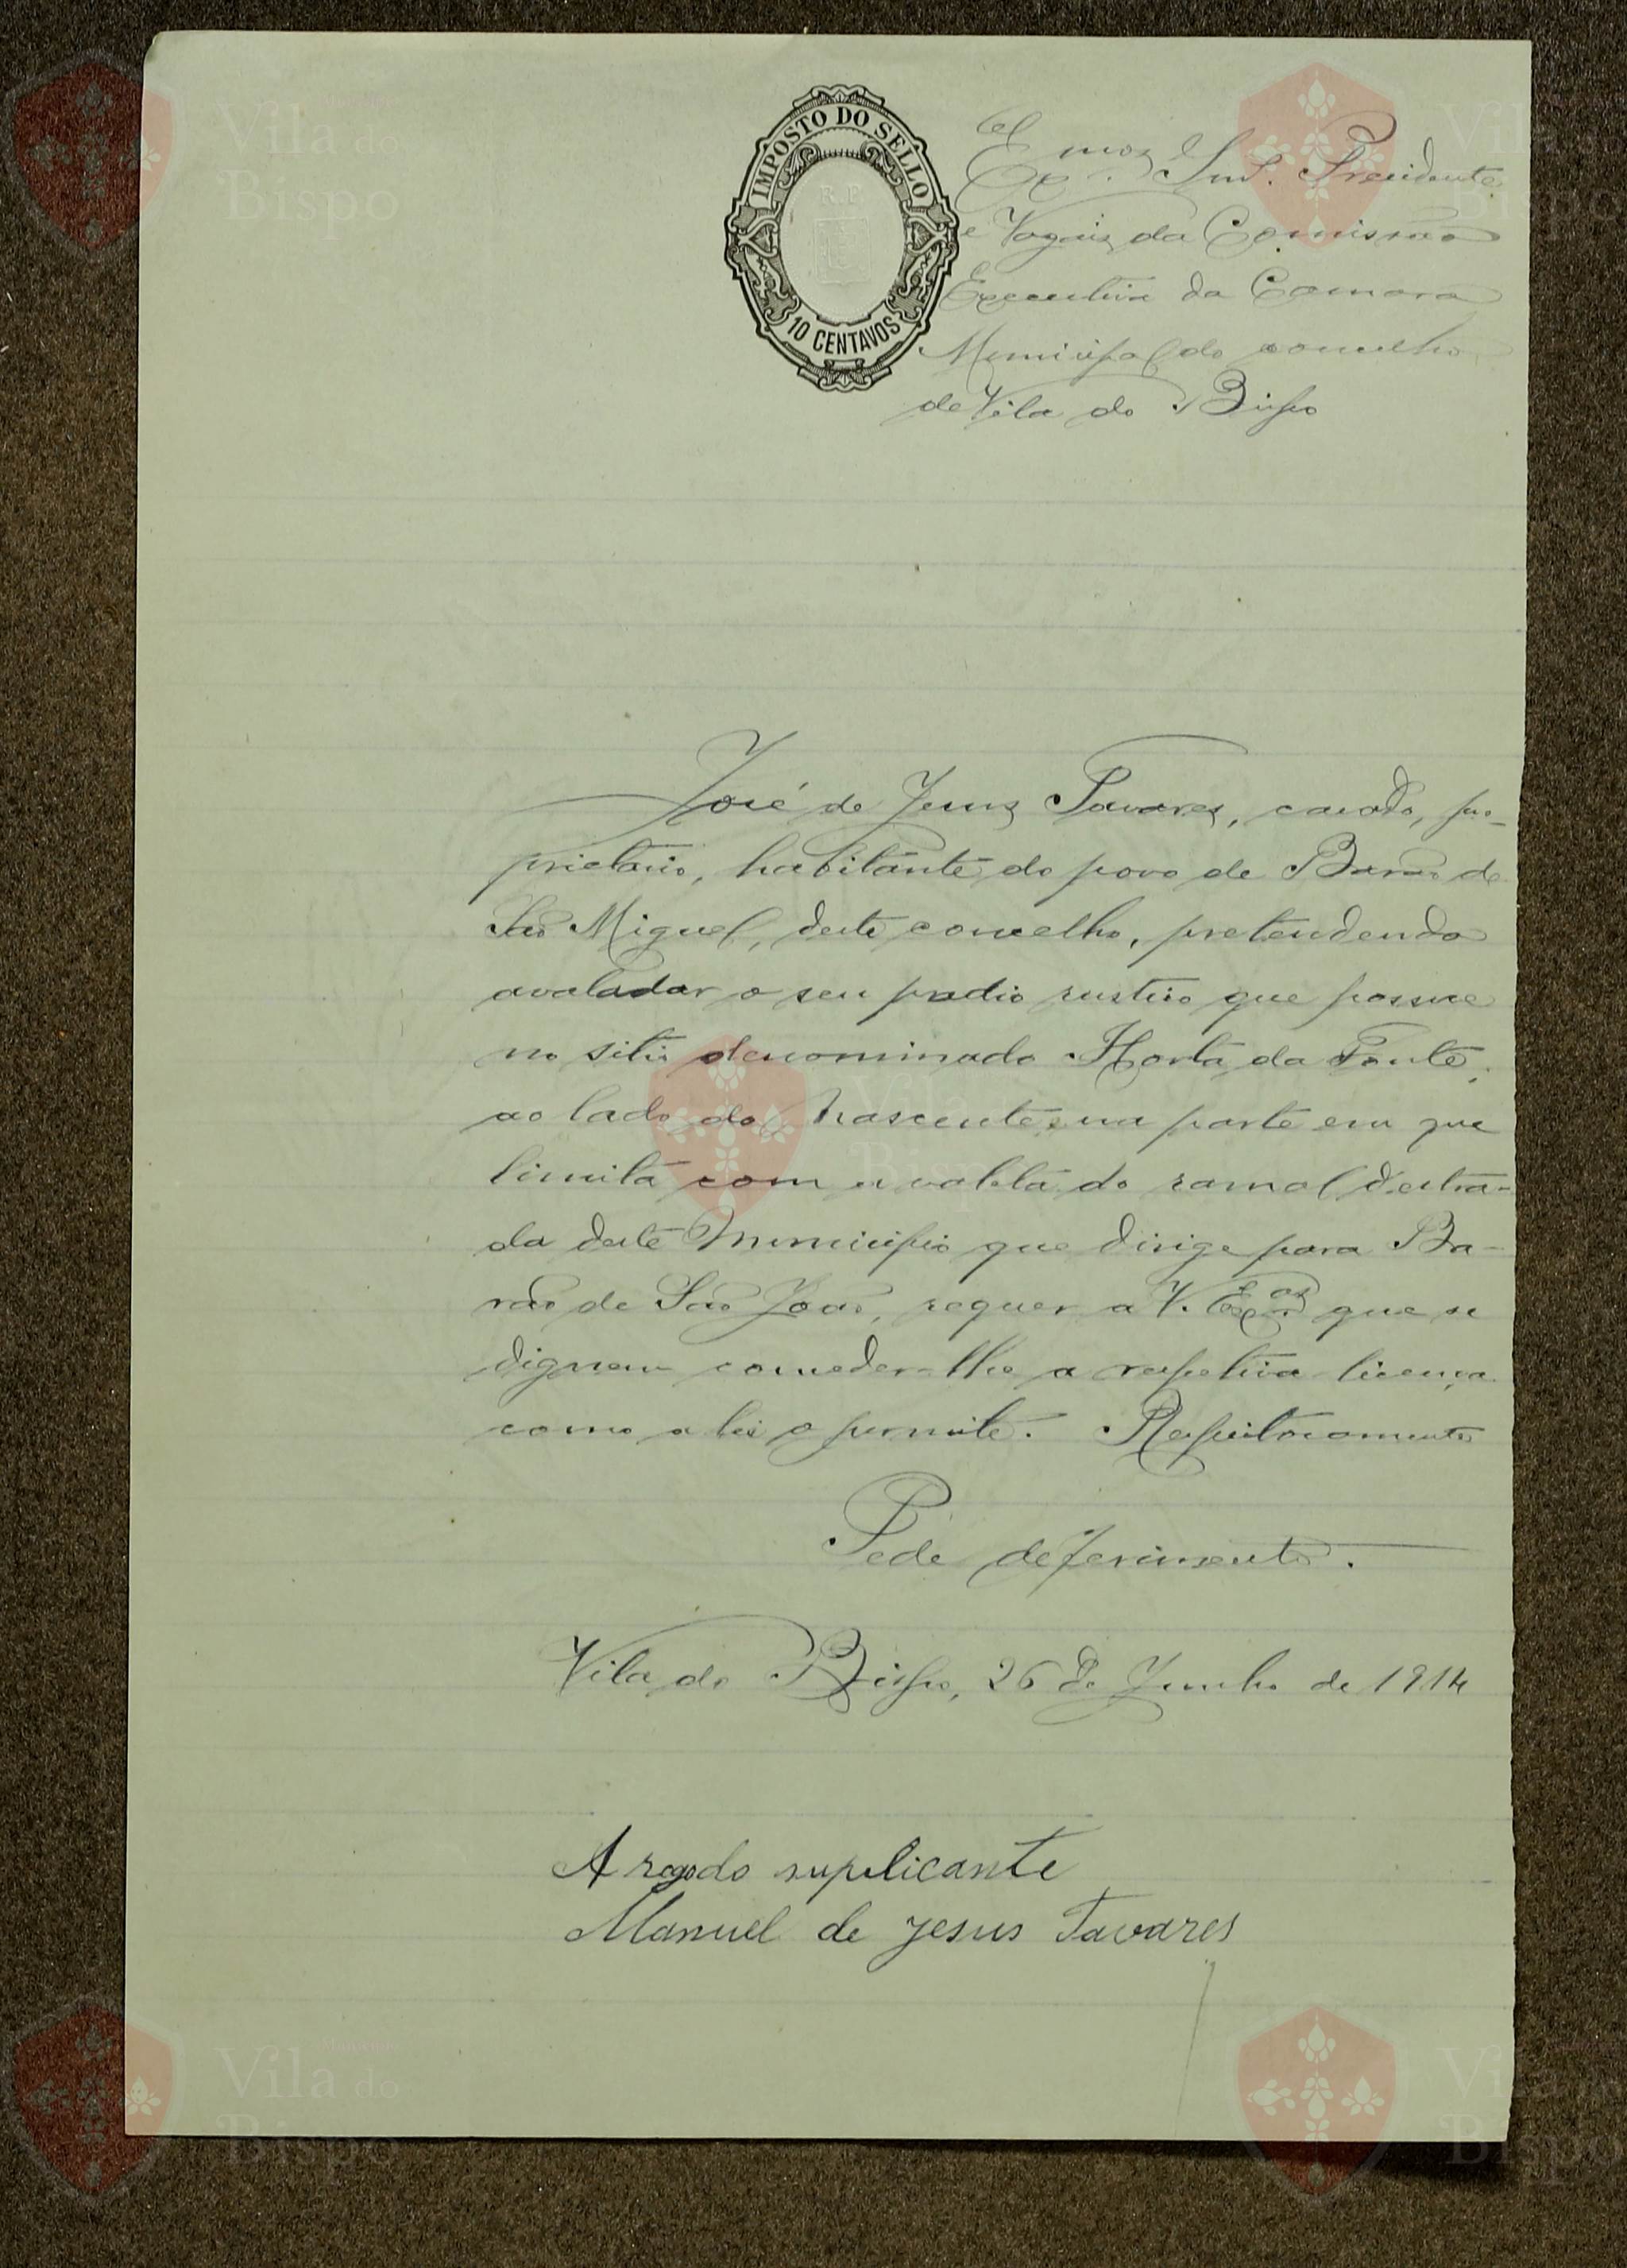 IMPOSTO DO SELLO
R.P
10 CENTAVOS
Exmos Snrs. Presidente
e Vogais da Comissão
Executiva da Camara
Municipal do concelho
de Vila do Bispo
José de Jesus Tavares, casado, pro-
prietario, habitante do povo de Barão de
São Miguel, deste concelho, pretendendo
avaladar o seu predio rustico que possue
no sitio denominado Horta da Fonte,
ao lado do Nascente, na parte em que
limita com a valeta do ramal d'estra-
da deste Municipio que dirige para Ba-
rão de São João, requer a V. Exas que se
dignem conceder-lhe a respetiva licença
como a lei o permite. Respeitosamente
Pede deferimento.
Vila do Bispo, 26 de Junho de 1914
A rogo do suplicante
Manuel de Jesus Tavares
Vila do
Bispo
Vila do
Bispo
Vila do
Bispo